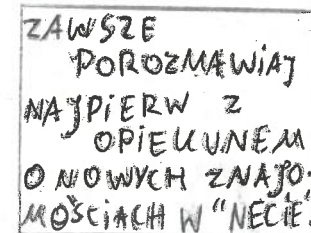 ZAWSZE
POROZMAWIAJ
NAJPIERW Z
OPIEKUNEM
O NOWYCH ZNAJO-
MOŚCIACH W "NECIE".